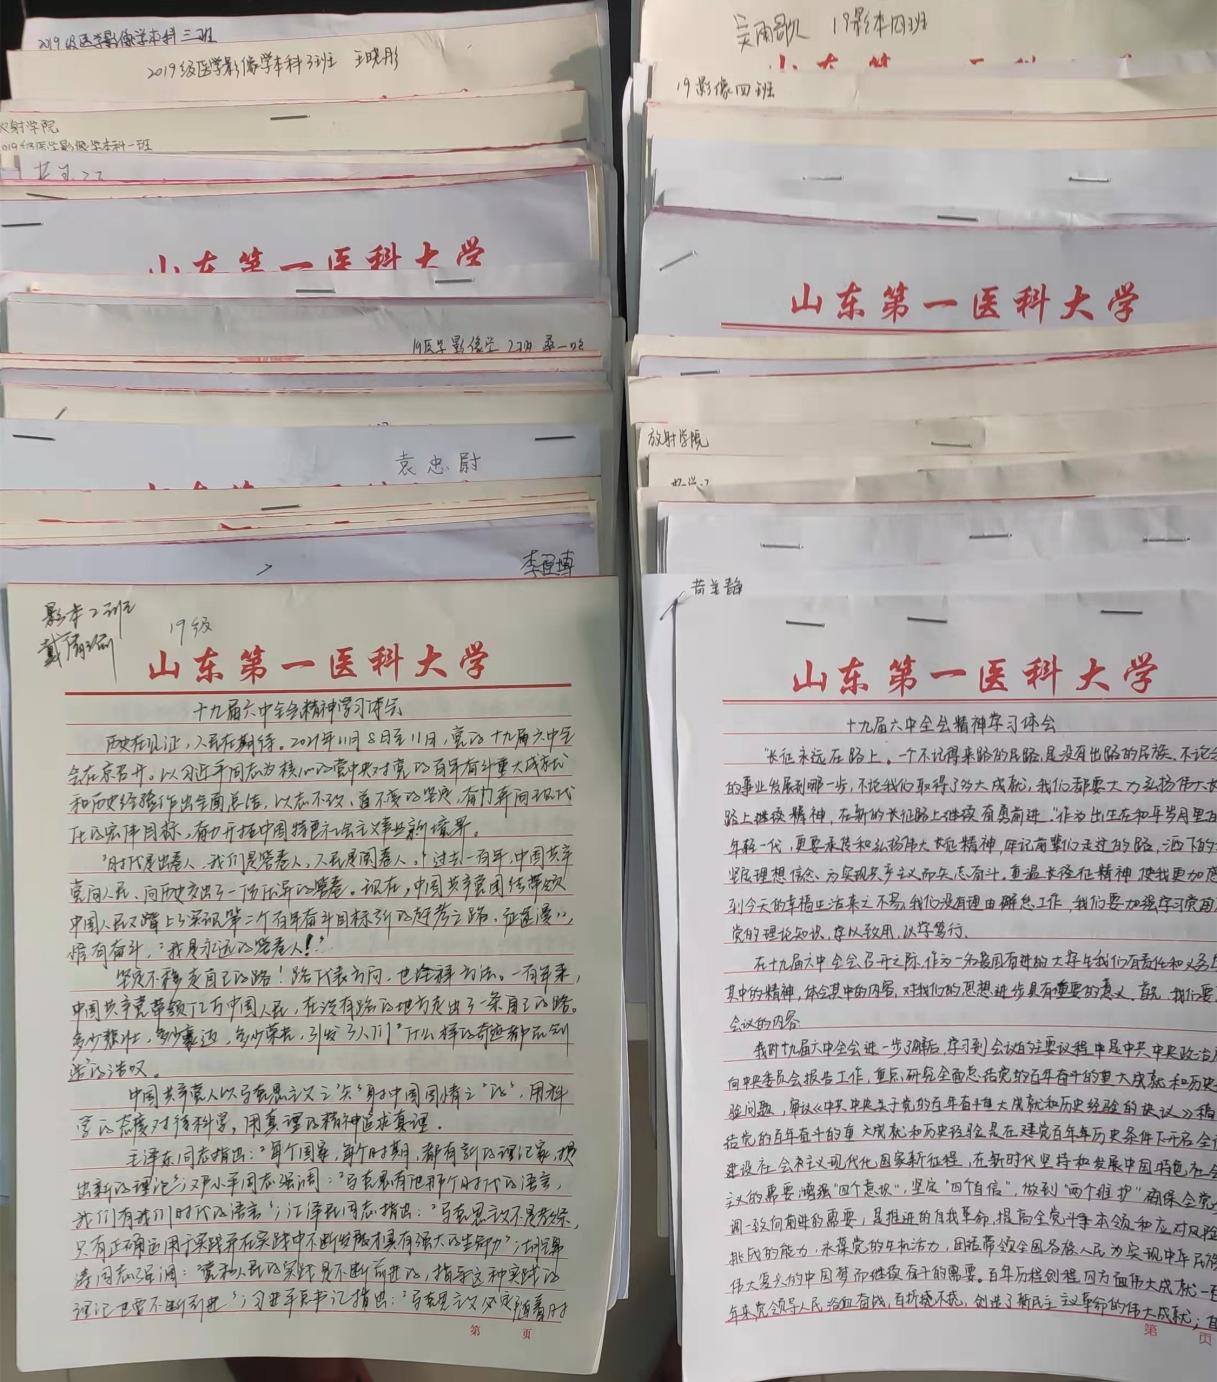 2019级医学影像学本科三班
2019级医学影像学本科3班 王晓彤
放射学院
2019级医学影像学本科一班
山东第一医科大学
19医学影像学2班 桑一
袁忠尉
李
影本2班
19级
戴
山东第一医科大学
十九届六中全会精神学习体会
历史在见证，人民在期待。2021年11月8日至11日，党的十九届六中全
会在京召开。以习近平同志为核心的党中央对党的百年奋斗重大成就
和历史经验作出全面总结，以志不改、道不变的坚定，奋力奔向现代
化的宏伟目标，奋力开拓中国特色社会主义事业新境界。
"时代是出卷人，我们是答卷人，人民是阅卷人。"过去一百年，中国共产
党向人民、向历史交出了一份优异的答卷。现在，中国共产党团结带领
中国人民又踏上了实现第二个百年奋斗目标新的赶考之路。征途漫漫，
惟有奋斗，"我是永远的答卷人！"
坚定不移走自己的路！路代表方向，也诠释方法。一百年来，
中国共产党带领亿万中国人民，在没有路的地方走出了一条自己的路。
多少悲壮，多少豪迈，多少荣光，引发了人们"什么样的奇迹都可创
造"的浩叹。
中国共产党人以马克思主义之"矢"射中国国情之"的"，用科
学的态度对待科学，用真理的精神追求真理。
毛泽东同志指出："每个国家，每个时期，都有新的理论家，提
出新的理论"；邓小平同志强调："马克思有他那个时代的语言，
我们有我们时代的语言"；江泽民同志指出："马克思主义不是教条，
只有正确运用于实践并在实践中不断发展才具有强大的生命力"；胡锦
涛同志强调："党和人民的实践是不断前进的，指导这种实践的
理论也要不断前进"；习近平总书记指出："马克思主义必定随着时
第 页
吴雨歌 19影本四班
山东第一
19影像四班
山东第一医科大学
放射学院
山东第一医科大学
十九届六中全会精神学习体会
"长征永远在路上。一个不记得来路的民族，是没有出路的民族。不论
的事业发展到哪一步，不论我们取得了多大成就，我们都要大力弘扬伟大
路上继续精神，在新的长征路上继续奋勇前进。"作为出生在和平岁月里
年轻一代，更要承接和弘扬伟大长征精神，牢记前辈们走过的路，洒下的
坚定理想信念、为实现共产主义而矢志奋斗。重温长征精神使我更加
到今天的幸福生活来之不易，我们没有理由懈怠工作，我们要加强学习党
党的理论知识，学以致用，以学笃行。
在十九届六中全会召开之际，作为一名爱国有进的大学生我们有责任和义务
其中的精神，体会其中的内容，对我们的思想进步具有重要的意义，首先，我们要
会议的内容
我对十九届六中全会进一步了解后，学习到会议的主要议程中是中共中央政治
向中央委员会报告工作，重点研究全面总结党的百年奋斗的重大成就和历史
验问题，审议《中共中央关于党的百年奋斗重大成就和历史经验的决议》稿
结党的百年奋斗的重大成就和历史经验是在建党百年历史条件下开启全
建设社会主义现代化国家新征程，在新时代坚持和发展中国特色社会
主义的需要；增强"四个意识"，坚定"四个自信"，做到"两个维护"确保全党
调一致向前进的需要，是推进的自我革命，提高全党斗争本领和应对风险
挑战的能力，永葆党的生机活力，团结带领全国各族人民为实现中华民族
伟大复兴的中国梦而继续奋斗的需要。百年历程创程，因为血伟大成就一
年来党领导人民浴血奋战，百折不挠，创造了新民主主义革命的伟大成就；
第 页